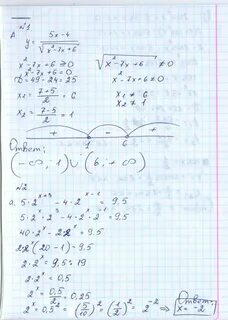 №1
A y = 5x-4 / √(x²-7x+6)
x²-7x+6 ≥ 0 √(x²-7x+6) ≠ 0
x²-7x+6=0 x²-7x+6≠0
D=49-24=25
x₁ = (7+5)/2 = 6 x₁ ≠ 6
x₂ = (7-5)/2 = 1 x₂ ≠ 1
+ - +
1 6
Ответ:
(-∞; 1) ∪ (6; +∞)
№2
а. 5·2^(x+3) - 4·2^(x-1) = 9.5
5·2^x·2³ - 4·2^x·2^(-1) = 9.5
40·2^x - 2·2^x = 9,5
2·2^x(20-1) = 9.5
2·2^x = 9,5 : 19
2·2^x = 0,5
2^x = 0,5/2 = 0,25
2^x = 0,5² = (5/10)² = (1/2)² = 2^(-2) ⇒ Ответ: x = -2